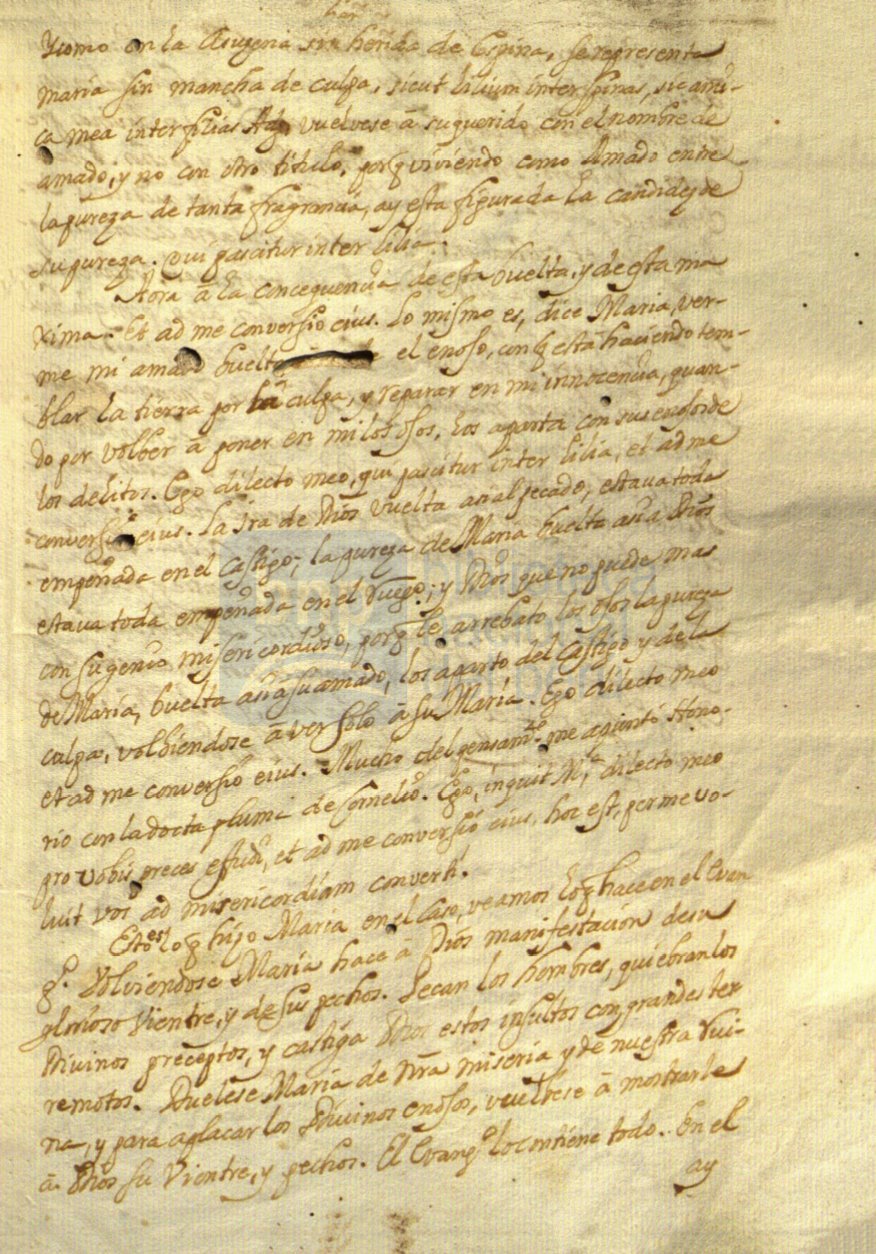 y como en la Asuzena sin herida de Espina, se representa
maria sin mancha de culpa, sicut lilium inter spinas, sic ami-
ca mea inter filias vuelvese â su querido con el nombre de
amado, y no con otro titulo, porq̃ viviendo como Amado entre
la pureza de tanta fragrancia, ay esta figurada la candidez de
su pureza. qui pascitur inter lilia.
Aora â la consequencia de esta buelta, y de esta ma
xima. Et ad me conversio eius. Lo mismo es, dice Maria, ver-
me mi amado buelta el enojo, con q̃ está haciendo tem-
blar la tierra por la culpa, y reparar en mi innocencia, quan-
do por volber â poner en mi los ojos, los aparta con sus enojos de
los delitos. Ego dilecto meo, qui pascitur inter lilia, et ad me
conversio eius. La ira de Dios vuelta asia el pecado, estava toda
empeñada en el Castigo; la pureza de Maria buelta asia Dios
estava toda empeñada en el ruego; y Dios que no puede mas
con su genio misericordioso, porq̃ le arrebato los ojos la pureza
de Maria, buelta asia su amado, los aparto del Castigo y de la
culpa, volbiendose â ver solo â su Maria. Ego dilecto meo
et ad me conversio eius. Mucho del pensamto. me apuntó Hono-
rio con la docta pluma de Cornelio. Ego, inquit Ma. dilecto meo
pro vobis preces effudi, et ad me conversio eius, hoc est, per me vo-
luit vos ad misericordiam converti.
Esto es lo q̃ hizo Maria en el Caso, veamos lo q̃ hace en el Evan
go. Volviendose Maria hace â Dios manifestacion de su
glorioso Vientre, y de sus pechos. Pecan los hombres, quiebran los
Divinos preceptos, y castiga Dios estos insultos con grandes ter
remotos. Duelese Maria de nr̃a miseria y de nuestra rui-
na, y para aplacar los Divinos enojos, vuelbese â mostrarle
â Dios su Vientre, y pechos. El Evango. lo contiene todo. En el
ay
Biblioteca
Nacional
del Perú
bnp